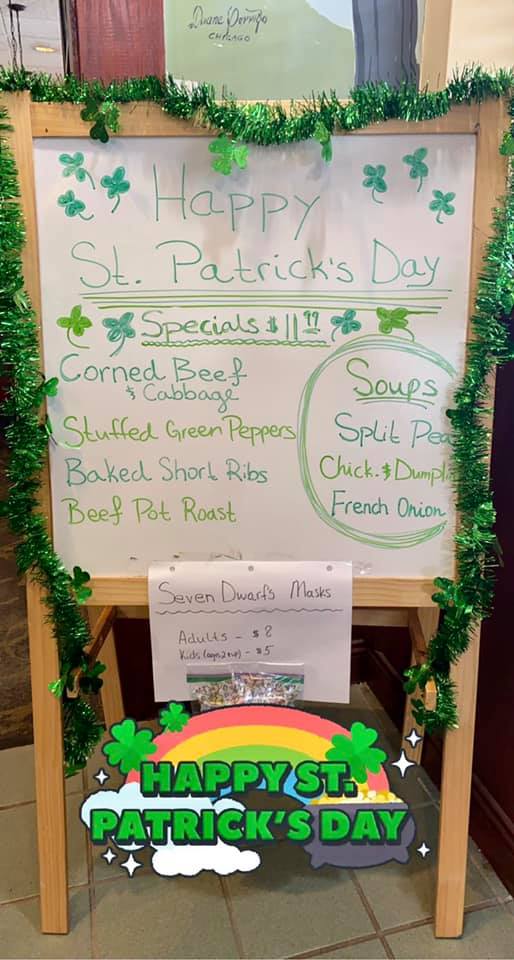 Duane Dorrigo
CHICAGO
Happy
St. Patrick's Day
Specials $11.99
Corned Beef
& Cabbage
Stuffed Green Peppers
Baked Short Ribs
Beef Pot Roast
Soups
Split Pea
Chick. & Dumpli
French Onion
Seven Dwarfs Masks
Adults - $8
Kids (ages 2 & up) - $5
HAPPY ST.
PATRICK'S DAY